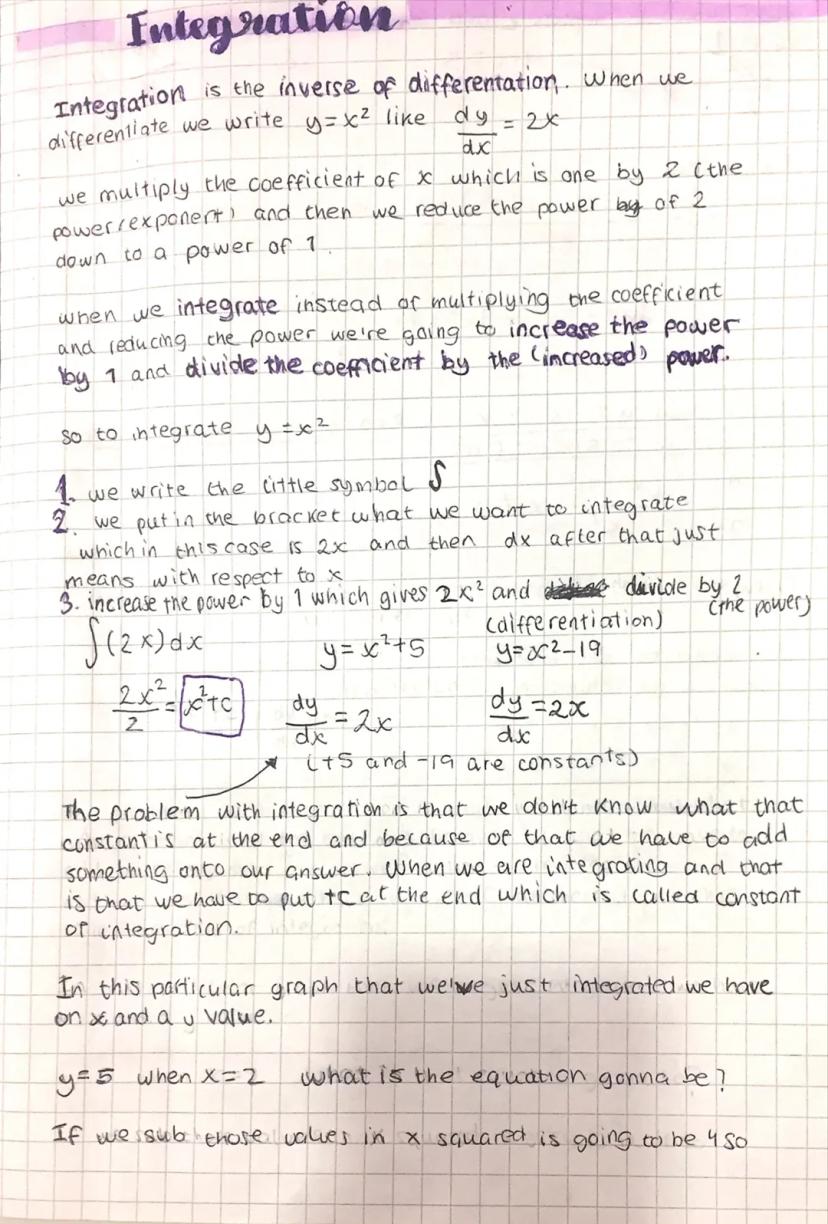 Integration
Integration is the inverse of differentation. When we
differentiate we write y=x² like dy/dx = 2x
we multiply the coefficient of x which is one by 2 (the
power(exponent) and then we reduce the power of 2
down to a power of 1.
when we integrate instead of multiplying the coefficient
and reducing the power we're going to increase the power
by 1 and divide the coefficient by the (increased) power.
so to integrate y=x²
1. we write the little symbol ∫
2. we put in the bracket what we want to integrate
which in this case is 2x and then dx after that just
means with respect to x
3. increase the power by 1 which gives 2x² and divide by 2
(the power)
(differentiation)
∫(2x)dx y=x²+5 y=x²-19
2x²/2 = x²+c dy/dx = 2x dy/dx = 2x
(+5 and -19 are constants)
The problem with integration is that we don't know what that
constant is at the end and because of that we have to add
something onto our answer. When we are integrating and that
is that we have to put +c at the end which is called constant
of integration.
In this particular graph that we've just integrated we have
on x and a y value.
y=5 when x=2 what is the equation gonna be?
If we sub those values in x squared is going to be 4 so